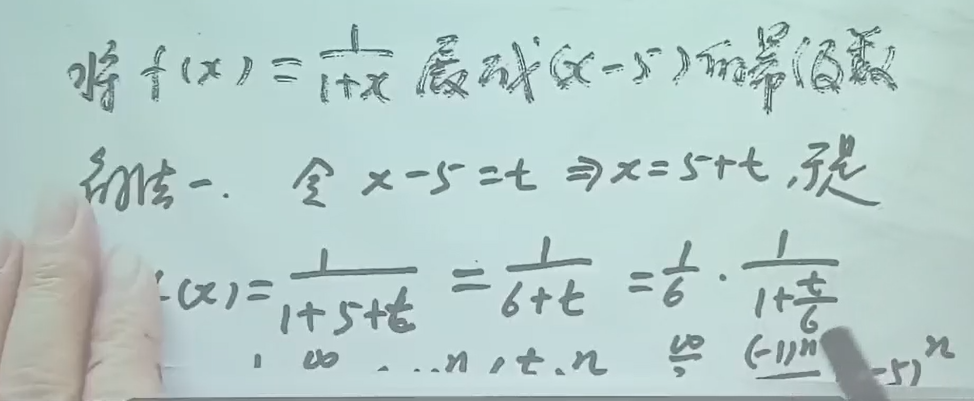 将 f(x) = 1/(1+x) 展成 (x-5) 的幂级数
解法一. 令 x-5=t ⇒ x=5+t, 于是
(x) = 1/(1+5+t) = 1/(6+t) = 1/6 · 1/(1+t/6)
∞ n t n ∞ (-1)^n -5)^n